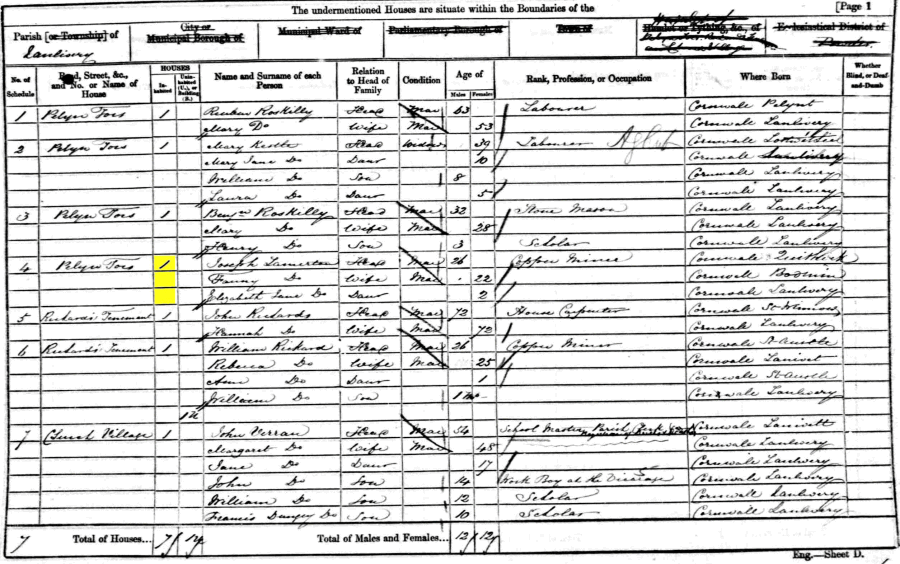 The undermentioned Houses are situate within the Boundaries of the [Page 1
Parish [or Township] of City or Municipal Borough of Municipal Ward of Parliamentary Borough of Town of Hamlet or Tything, &c., of Ecclesiastical District of
Lanlivery
No. of Schedule Road, Street, &c., and No. or Name of House HOUSES Inhabited Uninhabited (U.), or Building (B.) Name and Surname of each Person Relation to Head of Family Condition Age of Males Females Rank, Profession, or Occupation Where Born Whether Blind, or Deaf-and-Dumb
1 Pelyn Tors 1 Reuben Roskilly Head Mar 63 Labourer Cornwall Pelynt
Mary Do Wife Mar 53 Cornwall Lanlivery
2 Pelyn Tors 1 Mary Head Widow 39 Labourer Cornwall
Mary Jane Do Daur 10 Cornwall Lanlivery
William Do Son 8 Cornwall Lanlivery
Laura Do Daur 5 Cornwall Lanlivery
3 Pelyn Tors 1 Benjn Roskilly Head Mar 32 Stone Mason Cornwall Lanlivery
Mary Do Wife Mar 28 Cornwall Lanlivery
Henry Do Son 3 Scholar Cornwall Lanlivery
4 Pelyn Tors 1 Joseph Lamerton Head Mar 26 Copper Miner Cornwall
Fanny Do Wife Mar 22 Cornwall Bodmin
Elizabeth Jane Do Daur 2 Cornwall Lanlivery
5 Rickard's Tenement 1 John Rickards Head Mar 72 House Carpenter Cornwall St Winnow
Hannah Do Wife Mar 72 Cornwall Lanlivery
6 Rickard's Tenement 1 William Rickard Head Mar 26 Copper Miner Cornwall St Austle
Rebecca Do Wife Mar 25 Cornwall Lanivet
Ann Do Daur 1 Cornwall St Austle
William Do Son 1 mo Cornwall Lanlivery
1 U
7 Church Village 1 John Verran Head Mar 54 School Master, Parish Clerk Cornwall Lanivett
Margaret Do Wife Mar 48 Cornwall Lanlivery
Jane Do Daur 17 Cornwall Lanlivery
John Do Son 14 Work Boy at the Vicarage Cornwall Lanlivery
William Do Son 12 Scholar Cornwall Lanlivery
Francis Dungey Do Son 10 Scholar Cornwall Lanlivery
7 Total of Houses... 7 1 U Total of Males and Females... 12 12
Eng.—Sheet D.